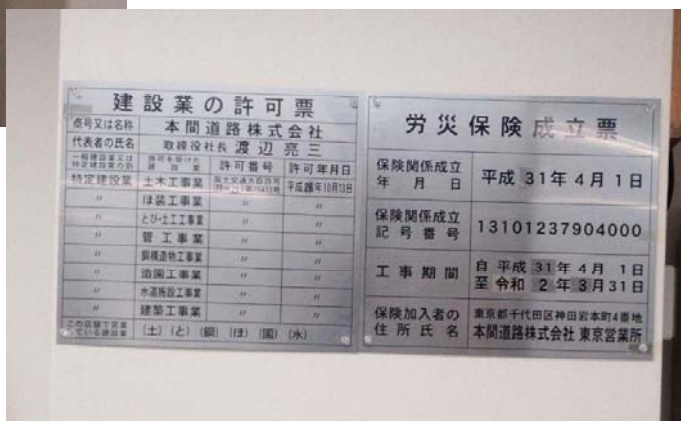 建設業の許可票
商号又は名称 本間道路株式会社
代表者の氏名 取締役社長 渡辺 亮三
一般建設業又は特定建設業の別 許可を受けた建設業 許可番号 許可年月日
特定建設業 土木工事業 国土交通大臣許可 平成28年10月13日
〃 ほ装工事業 〃 〃
〃 とび・土工工事業 〃 〃
〃 管工事業 〃 〃
〃 鋼構造物工事業 〃 〃
〃 造園工事業 〃 〃
〃 水道施設工事業 〃 〃
〃 建築工事業 〃 〃
この店舗で営業している建設業 (土) (と) (鋼) (ほ) (園) (水)
労災保険成立票
保険関係成立
年月日 平成 31年 4月 1日
保険関係成立
記号番号 13101237904000
工事期間 自 平成 31年 4月 1日
至 令和 2年 3月31日
保険加入者の 東京都千代田区神田岩本町4番地
住所氏名 本間道路株式会社 東京営業所